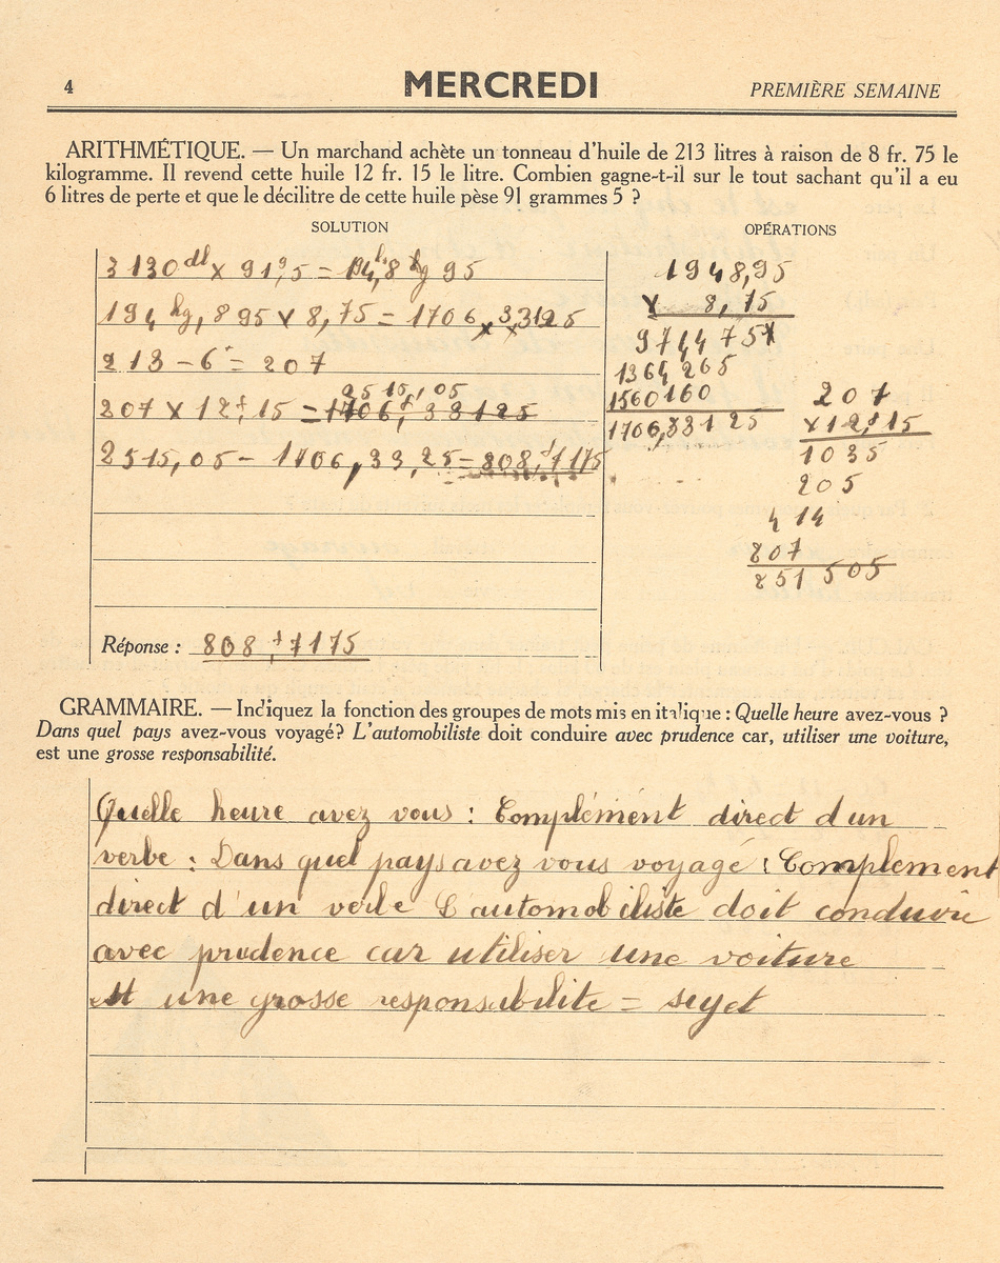 4
MERCREDI
PREMIÈRE SEMAINE
ARITHMÉTIQUE. — Un marchand achète un tonneau d'huile de 213 litres à raison de 8 fr. 75 le
kilogramme. Il revend cette huile 12 fr. 15 le litre. Combien gagne-t-il sur le tout sachant qu'il a eu
6 litres de perte et que le décilitre de cette huile pèse 91 grammes 5 ?
SOLUTION
2130 dl × 91g,5 = 194,8 kg 95
194 kg, 895 × 8,75 = 1706,33125
213 – 6 = 207
2515,05
207 × 12f,15 = 1706f,33125
2515,05 – 1706,33,25 = 808,f7175
Réponse : 808,f7175
OPÉRATIONS
1948,95
× 8,75
974475
1364265
1560160
1706,33125
207
×12,f15
1035
205
414
207
251505
GRAMMAIRE. — Indiquez la fonction des groupes de mots mis en italique : Quelle heure avez-vous ?
Dans quel pays avez-vous voyagé? L'automobiliste doit conduire avec prudence car, utiliser une voiture,
est une grosse responsabilité.
Quelle heure avez vous : Complément direct d'un
verbe : Dans quel pays avez vous voyagé : Complement
direct d'un verbe L'automobiliste doit conduire
avec prudence car utiliser une voiture
est une grosse responsabilite = sujet